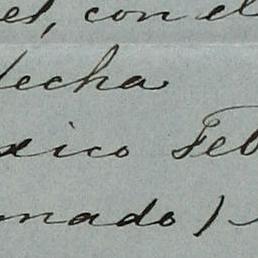 el, con el
fecha
xico Feb
mado)